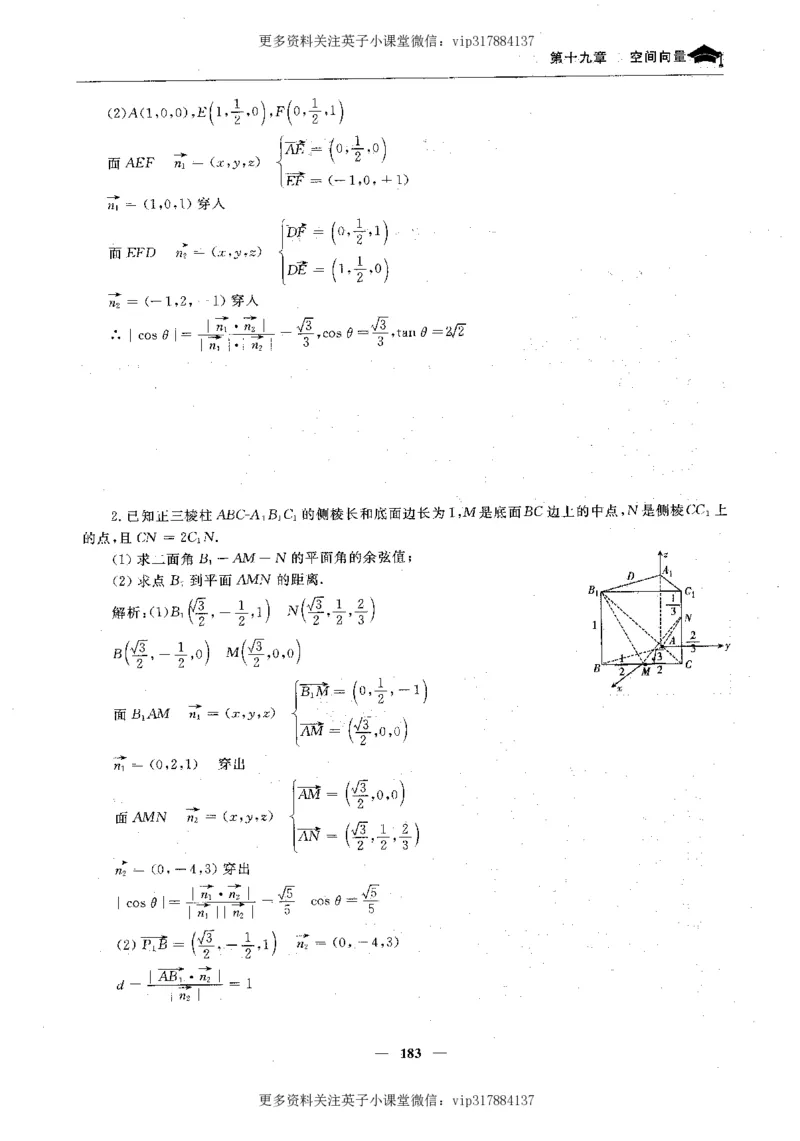 更多资料关注英子小课堂微信：vip317884137
第十九章 空间向量
(2)A(1,0,0),E(1,1/2,0),F(0,1/2,1)
面 AEF n₁ = (x,y,z) { AE = (0,1/2,0)
EF = (-1,0,+1)
n₁ = (1,0,1) 穿入
面 EFD n₂ = (x,y,z) { DF = (0,1/2,1)
DE = (1,1/2,0)
n₂ = (-1,2,-1) 穿入
∴ |cos θ| = |n₁·n₂| / |n₁|·|n₂| = √3/3, cos θ = √3/3, tan θ = 2√2
2. 已知正三棱柱 ABC-A₁B₁C₁ 的侧棱长和底面边长为 1,M 是底面 BC 边上的中点,N 是侧棱 CC₁ 上
的点,且 CN = 2C₁N.
(1) 求二面角 B₁-AM-N 的平面角的余弦值;
(2) 求点 B₁ 到平面 AMN 的距离.
解析:(1)B₁(√3/2,-1/2,1) N(√3/2,1/2,2/3)
B(√3/2,-1/2,0) M(√3/2,0,0)
面 B₁AM n₁ = (x,y,z) { B₁M = (0,1/2,-1)
AM = (√3/2,0,0)
n₁ = (0,2,1) 穿出
面 AMN n₂ = (x,y,z) { AM = (√3/2,0,0)
AN = (√3/2,1/2,2/3)
n₂ = (0,-4,3) 穿出
|cos θ| = |n₁·n₂| / |n₁||n₂| = √5/5 cos θ = √5/5
(2) P₁B = (√3/2,-1/2,1) n₂ = (0,-4,3)
d = |AB₁·n₂| / |n₂| = 1
z
D
A₁
B₁
C₁
1/3
N
1
A
2/3
y
B
1/2
M
√3/2
C
x
— 183 —
更多资料关注英子小课堂微信：vip317884137